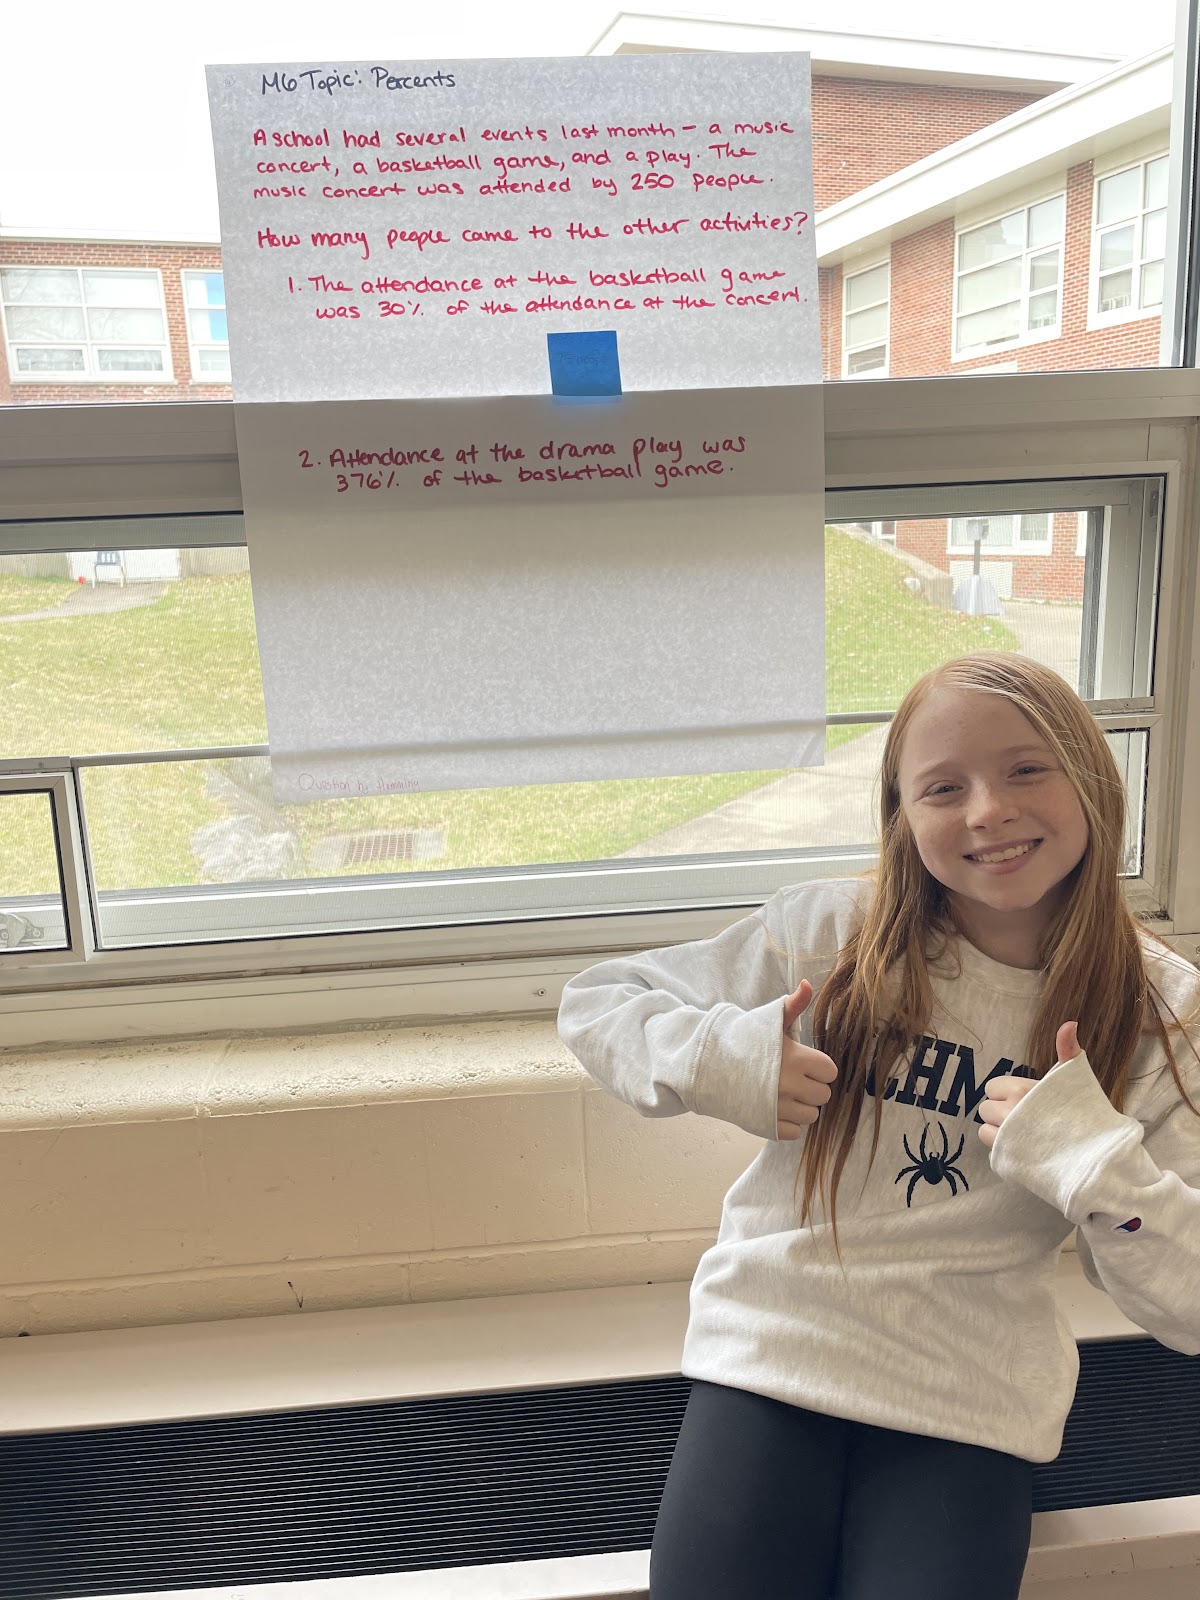 M6 Topic: Percents
A school had several events last month - a music
concert, a basketball game, and a play. The
music concert was attended by 250 people.
How many people came to the other activities?
1. The attendance at the basketball game
was 30% of the attendance at the concert.
2. Attendance at the drama play was
376% of the basketball game.
Question by
CHM